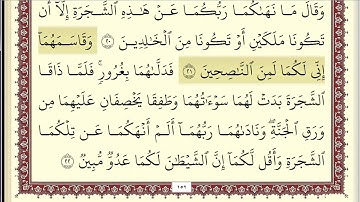 وَقَالَ مَا نَهَىٰكُمَا رَبُّكُمَا عَنْ هَـٰذِهِ ٱلشَّجَرَةِ إِلَّآ أَن
تَكُونَا مَلَكَيْنِ أَوْ تَكُونَا مِنَ ٱلْخَـٰلِدِينَ ٢٠ وَقَاسَمَهُمَآ
إِنِّى لَكُمَا لَمِنَ ٱلنَّـٰصِحِينَ ٢١ فَدَلَّىٰهُمَا بِغُرُورٍ ۚ فَلَمَّا ذَاقَا
ٱلشَّجَرَةَ بَدَتْ لَهُمَا سَوْءَٰتُهُمَا وَطَفِقَا يَخْصِفَانِ عَلَيْهِمَا مِن
وَرَقِ ٱلْجَنَّةِ ۖ وَنَادَىٰهُمَا رَبُّهُمَآ أَلَمْ أَنْهَكُمَا عَن تِلْكُمَا
ٱلشَّجَرَةِ وَأَقُل لَّكُمَآ إِنَّ ٱلشَّيْطَـٰنَ لَكُمَا عَدُوٌّ مُّبِينٌ ٢٢
١٥٢